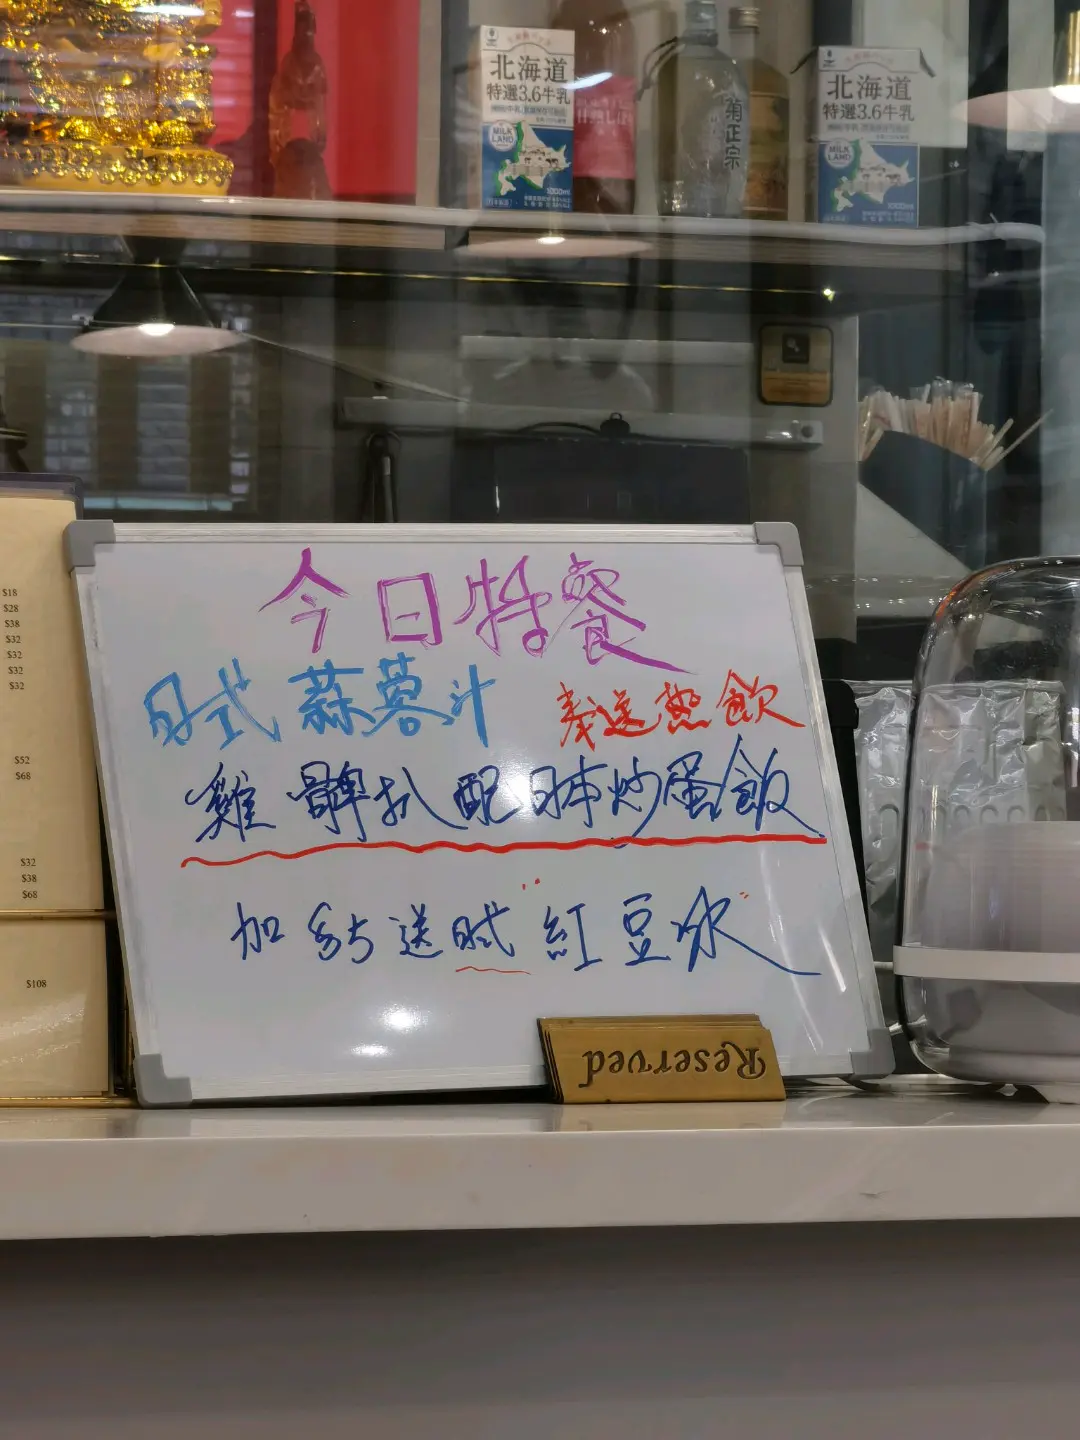 北海道
特選3.6牛乳
MILK LAND
1000ml
菊正宗
北海道
特選3.6牛乳
MILK LAND
1000ml
$18
$28
$38
$32
$32
$32
$32
$52
$68
$32
$38
$68
$108
今日特餐
日式蒜蓉汁 奉送熱飲
雞髀扒配日本炒蛋飯
加 送日式紅豆冰
Reserved